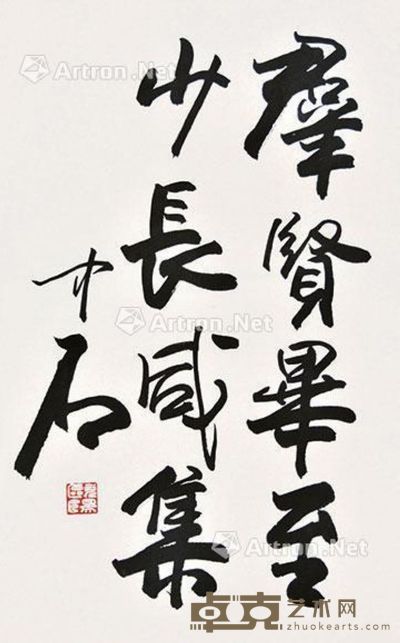 羣賢畢至
少長咸集
中石
Artron.Net
Artron.Net
Artron.Net
Artron.Net
卓克艺术网
www.zhuokearts.com